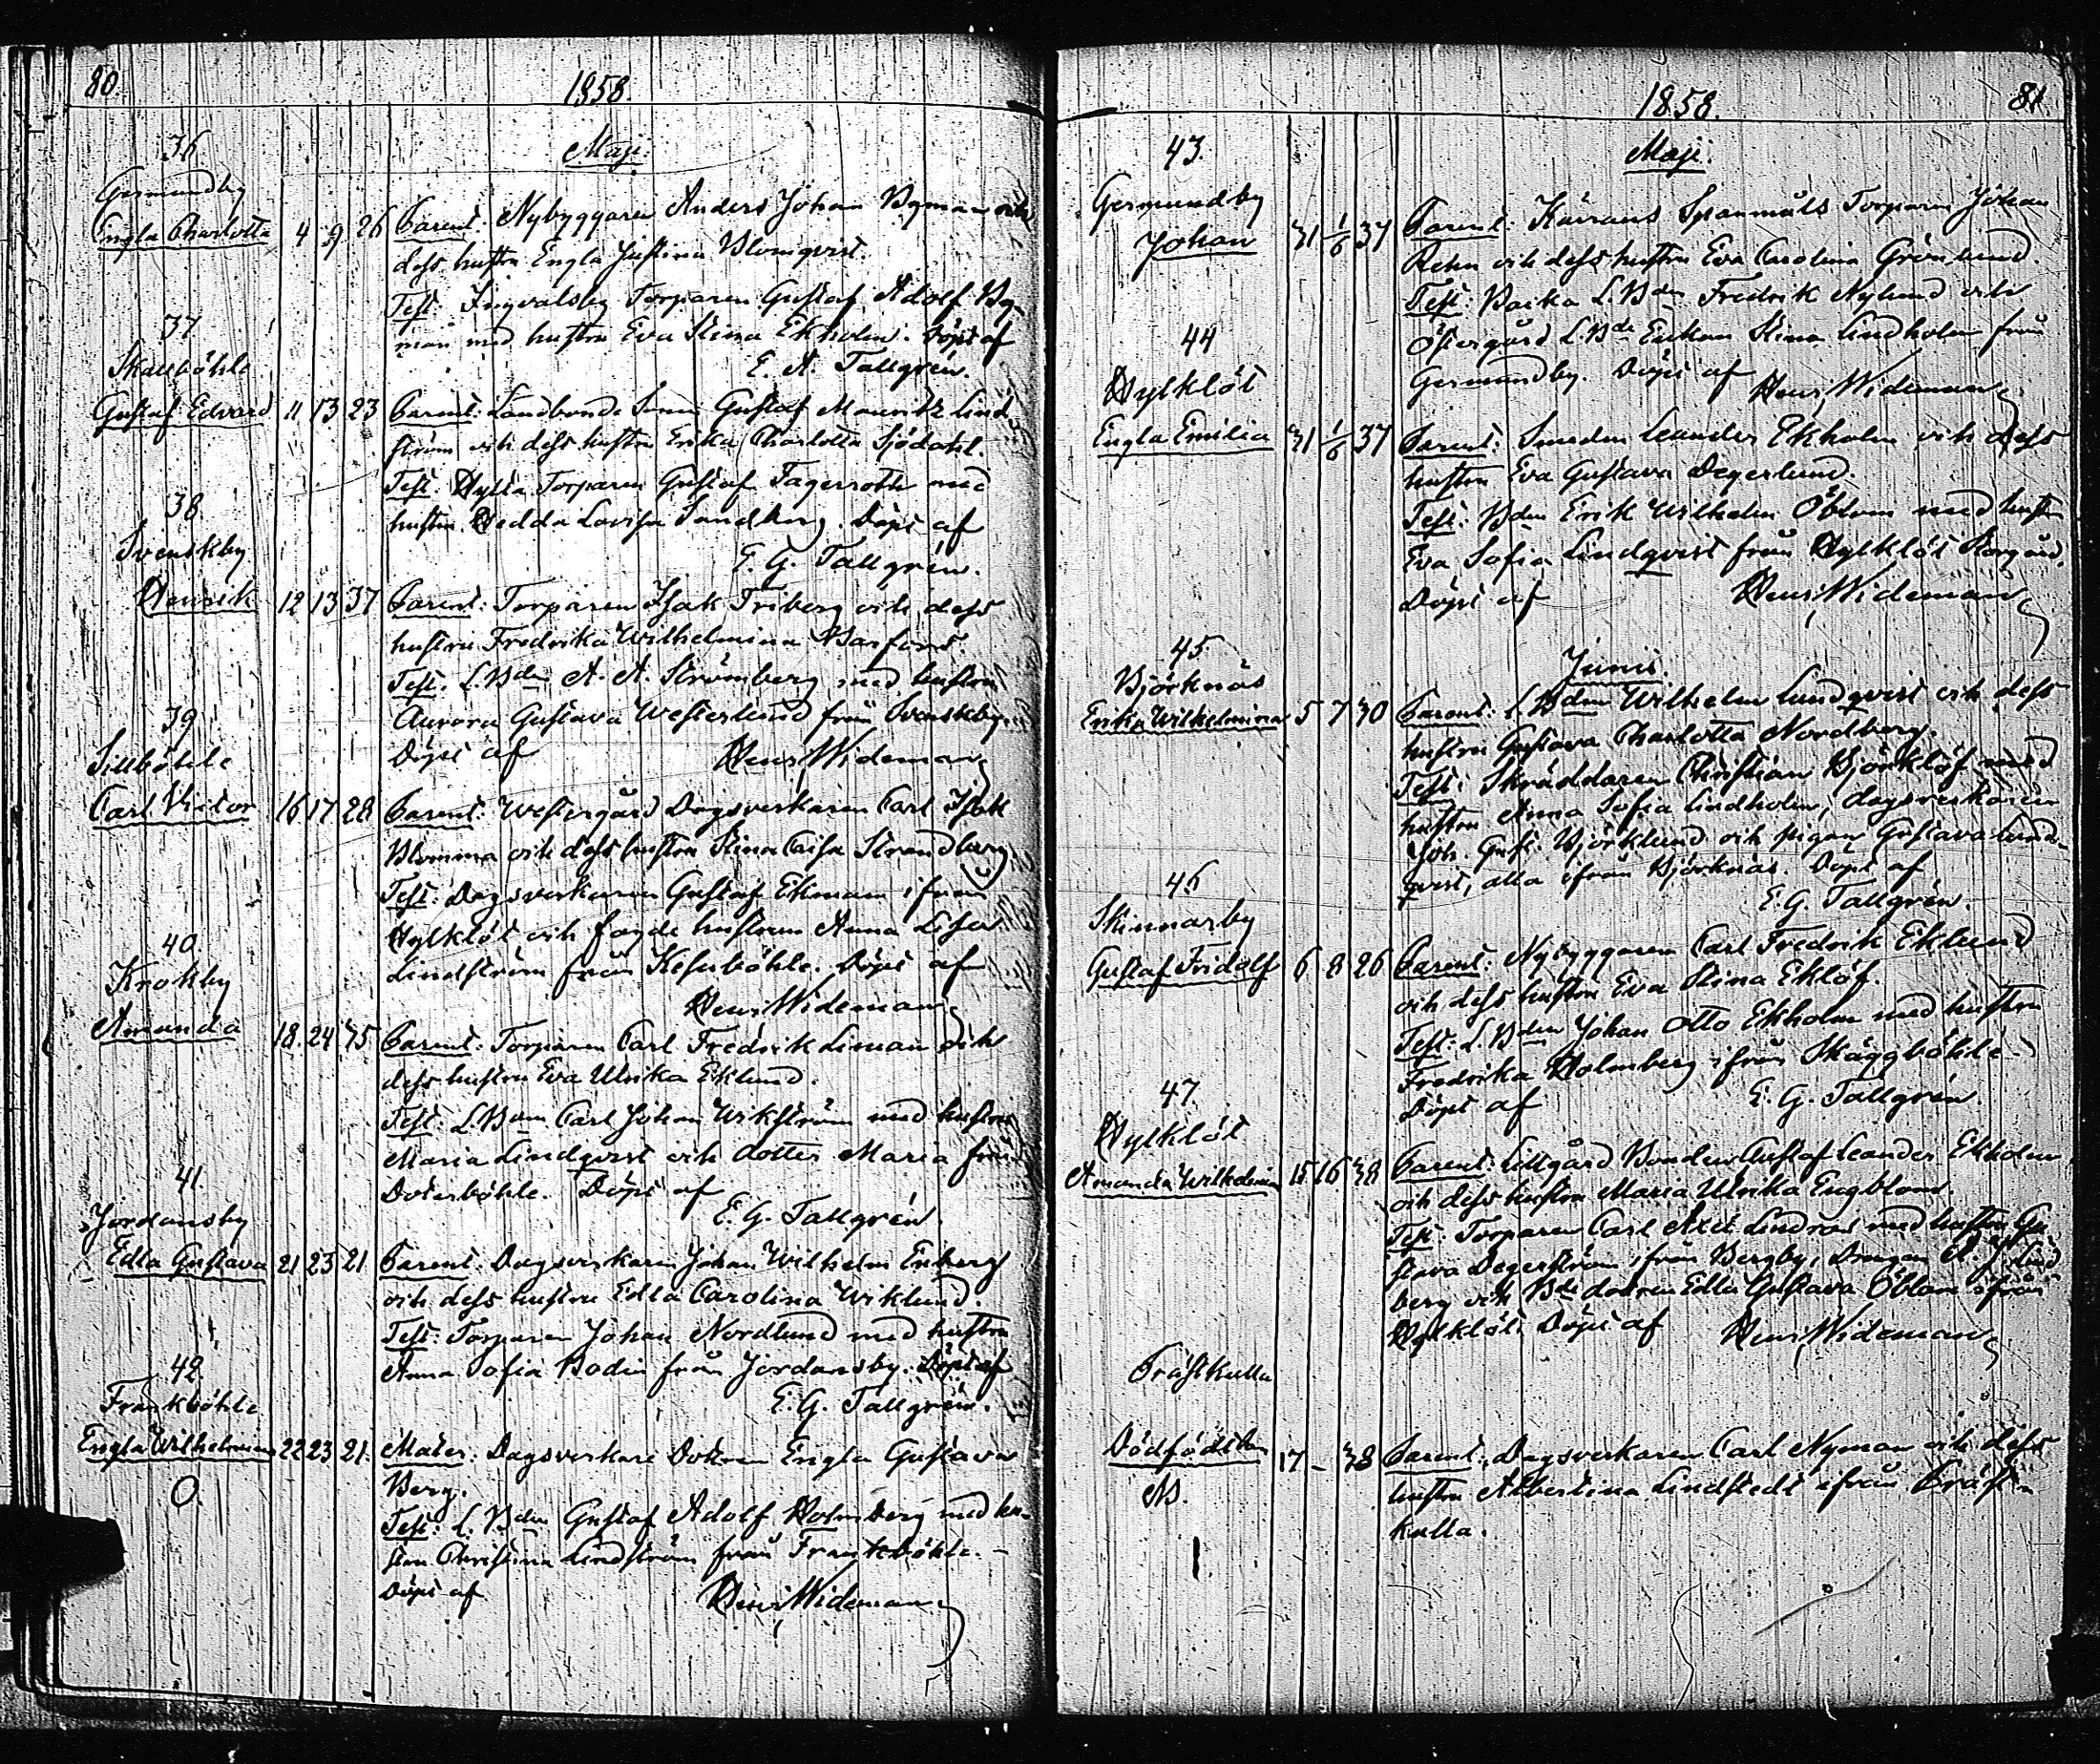 80
1858.
Maji.
36
Germundby
Engla Charlotta 4 9 26 Parent: Nybyggaren Anders Johan Nyman och
dess hustru Engla Justina Blomqvist.
Test: Ingvalsby Torparen Gustaf Adolf Ny-
man med hustru Eva Stina Ekholm. Döpt af
E. A. Tallgrén.
37
Skallböhle
Gustaf Edvard 11 13 23 Parent: Landbonde Gustaf Mauritz Lind
ström och dess hustru Erika Charlotta Sjödahl.
Test. Hylta Torparen Gustaf Fagerroth med
hustru Hedda Lovisa Sandberg. Döpt af
E. G. Tallgrén.
38.
Svenskby
Henrik 12 13 37 Parent: Torparen Isak Friberg och dess
hustru Fredrika Wilhelmina
Test. L. Bden A. A. Strömberg med hustru
Aurora Gustava Westerlund från Svenskby.
Döpt af Henr. Wideman
39
Sillböhle
Carl Victor 16 17 28 Parent: Westergård Dagsverkaren Carl Isak
Blomma och dess hustru Stina Caisa Strandberg
Test: Dagsverkaren Gustaf Ekman ifrån
Hylklöt och fogde hustrun Anna Lisa
Lindström från Kesuböhle. Döpt af
Henr. Wideman
40.
Krokby
Amanda 18. 24 35 Parent: Torparen Carl Fredrik Liman och
dess hustru Eva Ulrika Eklund.
Test: L. Bden Carl Johan Wikström med hustru
Maria Lindqvist och dotter Maria från
Dotterböhle. Döpt af
E. G. Tallgrén.
41.
Jordansby
Edla Gustava 21 23 21 Parent: Dagsverkaren Johan Wilhelm Enberg
och dess hustru Edla Carolina Wiklund
Test: Torparen Johan Nordlund med hustru
Anna Sofia Bodin från Jordansby. Döpt af
E. G. Tallgrén.
42.
Frankböhle
Engla Wilhelmina 22 23 21. Mater: Dagsverkare Dottren Engla Gustava
Berg.
O.
Test: L. Bden Gustaf Adolf Holmberg med hu-
stru Christina Lindström från Frankböhle.
Döpt af Henr. Wideman
1858. 81
Maji.
43.
Germundby
Johan 31 1/6 37 Parent: Kärans Spanmåls Torparen Johan
Rehn och dess hustru Eva Carolina Grönlund.
Test: Backa L. Bden Fredrik Nylund och
Östergård L. Bde Enckan Stina Lindholm från
Germundby. Döpt af Henr. Wideman
44
Hylklöt
Engla Emilia 31 1/6 37 Parent: Smeden Leander Ekholm och dess
hustru Eva Gustava Degerlund.
Test: Bden Erik Wilhelm Öblom med hustru
Eva Sofia Lindqvist från Hylklöt Storgård.
Döpt af Henr. Wideman
Junii
45.
Björknäs
Erika Wilhelmina 5 7 30 Parent: L. Bden Wilhelm Lundqvist och dess
hustru Gustava Charlotta Nordberg.
Test: Skräddaren Christian Björklöf med
hustru Anna Sofia Lindholm, dagsverkaren
Joh. Gust. Björklund och pigan Gustava Lund-
qvist, alla ifrån Björknäs. Döpt af
E. G. Tallgrén.
46
Skinnarby
Gustaf Fridolf 6 8 26 Parent: Nybyggaren Carl Fredrik Eklund
och dess hustru Eva Stina Eklöf.
Test: L. Bden Johan Otto Ekholm med hustru
Fredrika Holmberg ifrån Skäggböhle.
Döpt af E. G. Tallgrén
47.
Hylklöt
Amanda Wilhelmina 15 16 38 Parent: Lillgård Bonden Gustaf Leander Ekholm
och dess hustru Maria Ulrika Engblom.
Test. Torparen Carl Axel Lindroos med hustru Gu
stava Degerström ifrån Bergby, Drengen A. J. Lind
berg och Bde dottren Edla Gustava Öblom ifrån
Hylklöt. Döpt af Henr. Wideman
Prästkulla
Dödfödt barn 17 - 38 Parent: Dagsverkaren Carl Nyman och dess
M. hustru Albertina Lindstedt ifrån Präst-
kulla.
1.